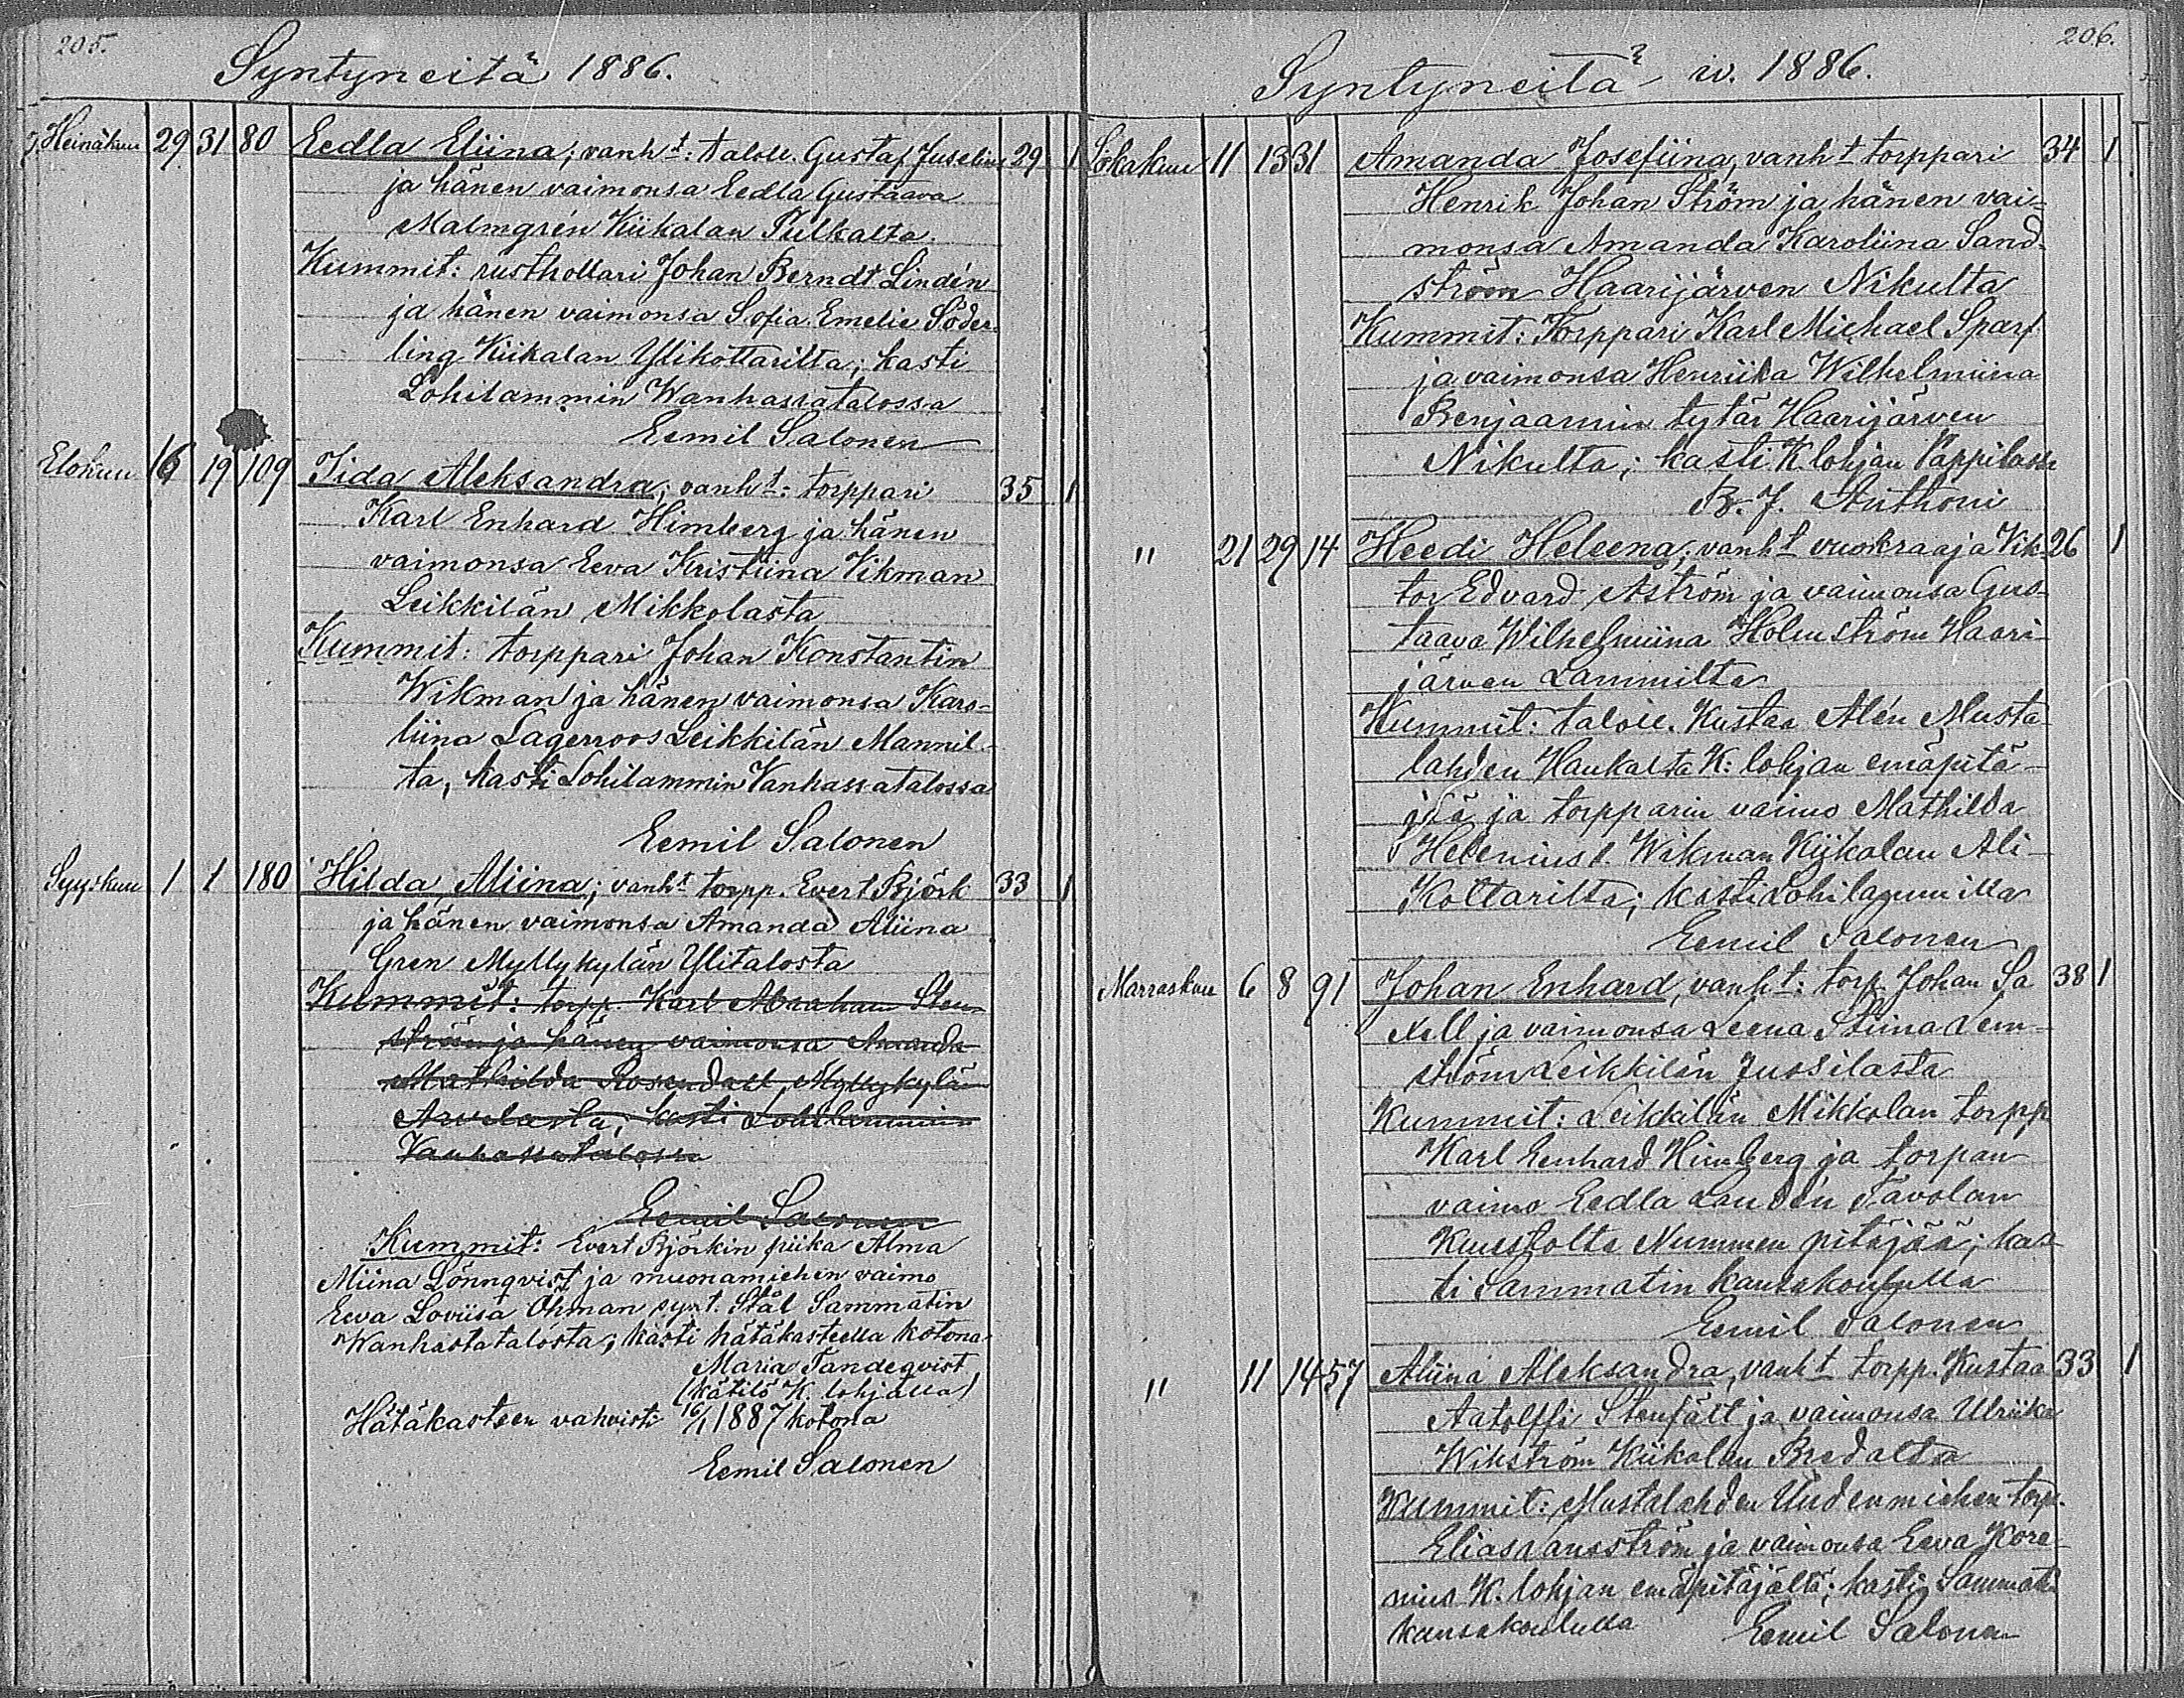 205.
Syntyneitä 1886.
Heinäkuu 29 31 80 Eedla Eliina; vanht: taloll. Gustaf Juselius 29 1
ja hänen vaimonsa Eedla Gustaava
Malmgrén Kiikalan Pulkalta.
Kummit: rusthollari Johan Berndt Lindén
ja hänen vaimonsa Sofia Emelie Söder-
ling Kiikalan Ylikottarilta; kasti
Lohilammin Wanhassatalossa
Eemil Salonen
Elokuu 16 19 109 Iida Aleksandra; vanht: torppari 35 1
Karl Enhard Himberg ja hänen
vaimonsa Eeva Kristiina Vikman
Leikkilän Mikkolasta
Kummit: torppari Johan Konstantin
Wikman ja hänen vaimonsa Karo-
liina Lagerroos Leikkilän Mannil-
ta, kasti Lohilammin Vanhassatalossa
Eemil Salonen
Syyskuu 1 1 180 Hilda Miina; vanht torpp. Evert Björk 33 1
ja hänen vaimonsa Amanda Aliina
Gren Myllykylän Ylitalosta
Kummit: torpp. Karl Abraham Sten-
ström ja hänen vaimonsa Amanda
Mathilda Rosendall, Myllykylän
Arvelasta; kasti Lohilammin
Vanhassatalossa
Eemil Salonen
Kummit: Evert Björkin piika Alma
Miina Lönnqvist ja muonamiehen vaimo
Eeva Loviisa Öhman synt. Stål Sammatin
Wanhastatalosta; kasti hätäkasteella kotona
Maria Tandeqvist
(kätilö K. lohjalla)
Hätäkasteen vahvisti 16/1 1887 kotona
Eemil Salonen
206.
Syntyneitä w. 1886.
Lokakuu 11 13 31 Amanda Josefiina, vanht torppari 34 1
Henrik Johan Ström ja hänen vai-
monsa Amanda Karoliina Sand-
ström Haarijärven Nikulta
Kummit: Torppari Karl Michael Sparf
ja vaimonsa Henriika Wilhelmiina
Benjaamin tytär Haarijärven
Nikulta; kasti K. lohjan Pappilassa
B. J. Anthoni
" 21 29 14 Heedi Heleena; vanht vuokraaja Vik- 26 1
tor Edvard Aström ja vaimonsa Gus-
taava Wilhelmiina Holmström Haari-
järven Lammilta
Kummit: taloll. Kustaa Alén Musta-
lahden Haukalta K: lohjan emäpitä-
jää ja torpparin vaimo Mathilda
Helenius l. Wikman Kiikalan Ali-
Kottarilta; kasti Lohilammilla
Eemil Salonen
Marraskuu 6 8 91 Johan Enhard, vanht: torp. Johan Sa 38 1
xell ja vaimonsa Leena Stiina Lem-
ström Leikkilän Jussilasta
Kummit: Leikkilän Mikkolan torpp.
Karl Eenhard Himberg ja torpan
vaimo Eedla Lindén Tavolan
Kuustolta Nummen pitäjää; kas-
ti Sammatin kansakoululla
Eemil Salonen
" 11 14 57 Aliina Aleksandra, vanht torpp. Kustaa 33 1
Aatolffi Stenfält ja vaimonsa Ulriika
Wikström Kiikalan Bredalta
Kummit: Mustalahden Uudenmiehen torp.
Elias Lansström ja vaimonsa Eeva Kore-
nius K. lohjan emäpitäjältä; kasti Sammatin
kansakoululla Eemil Salonen